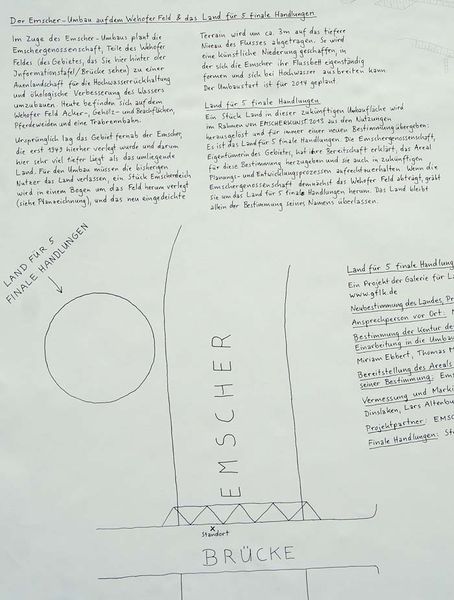 Der Emscher-Umbau auf dem Wehofer Feld & das Land für 5 finale Handlungen
Im Zuge des Emscher-Umbaus plant die
Emschergenossenschaft, Teile des Wehofer
Feldes (des Gebietes, das Sie hier hinter oder
Informationstafel/Brücke sehen) zu einer
Auenlandschaft für die Hochwasserrückhaltung
und ökologische Verbesserung des Wassers
umzubauen. Heute befinden sich auf dem
Wehofer Feld Acker-, Gehölz- und Brachflächen,
Pferdeweiden und eine Trabrennbahn.
Ursprünglich lag das Gebiet fernab der Emscher,
die erst 1949 hierher verlegt wurde und darum
hier sehr viel tiefer liegt als das umliegende
Land. Für den Umbau müssen die bisherigen
Nutzer das Land verlassen, ein Stück Emscherdeich
wird in einem Bogen um das Feld herum verlegt
(siehe Planzeichnung), und das neu eingedeichte
Terrain wird um ca. 3m auf das tiefere
Niveau des Flusses abgetragen. So wird
eine künstliche Niederung geschaffen, in
der sich die Emscher ihr Flussbett eigenständig
formen und sich bei Hochwasser ausbreiten kann.
Der Umbaustart ist für 2014 geplant.
Land für 5 finale Handlungen
Ein Stück Land in dieser zukünftigen Umbaufläche wird
im Rahmen von EMSCHERKUNST.2013 aus den Nutzungen
herausgelöst und für immer einer neuen Bestimmung übergeben:
Es ist das Land für 5 finale Handlungen. Die Emschergenossenschaft,
Eigentümerin des Gebietes, hat ihre Bereitschaft erklärt, das Areal
für diese Bestimmung herzugeben und sie auch in zukünftigen
Planungs- und Entwicklungsprozessen aufrechtzuerhalten. Wenn die
Emschergenossenschaft demnächst das Wehofer Feld abträgt, gräbt
sie um das Land für 5 finale Handlungen herum. Das Land bleibt
allein der Bestimmung seines Namens überlassen.
LAND FÜR 5
FINALE HANDLUNGEN
EMSCHER
Standort
BRÜCKE
Land für 5 finale Handlung
Ein Projekt der Galerie für La
www.gflk.de
Neubestimmung des Landes, Pr
Ansprechperson vor Ort:
Bestimmung der Kontur de
Einarbeitung in die Umbau
Miriam Ebbert, Thomas M
Bereitstellung des Areals
seiner Bestimmung: Ems
Vermessung und Marki
Dinslaken, Lars Altenbu
Projektpartner: EMSC
Finale Handlungen: St